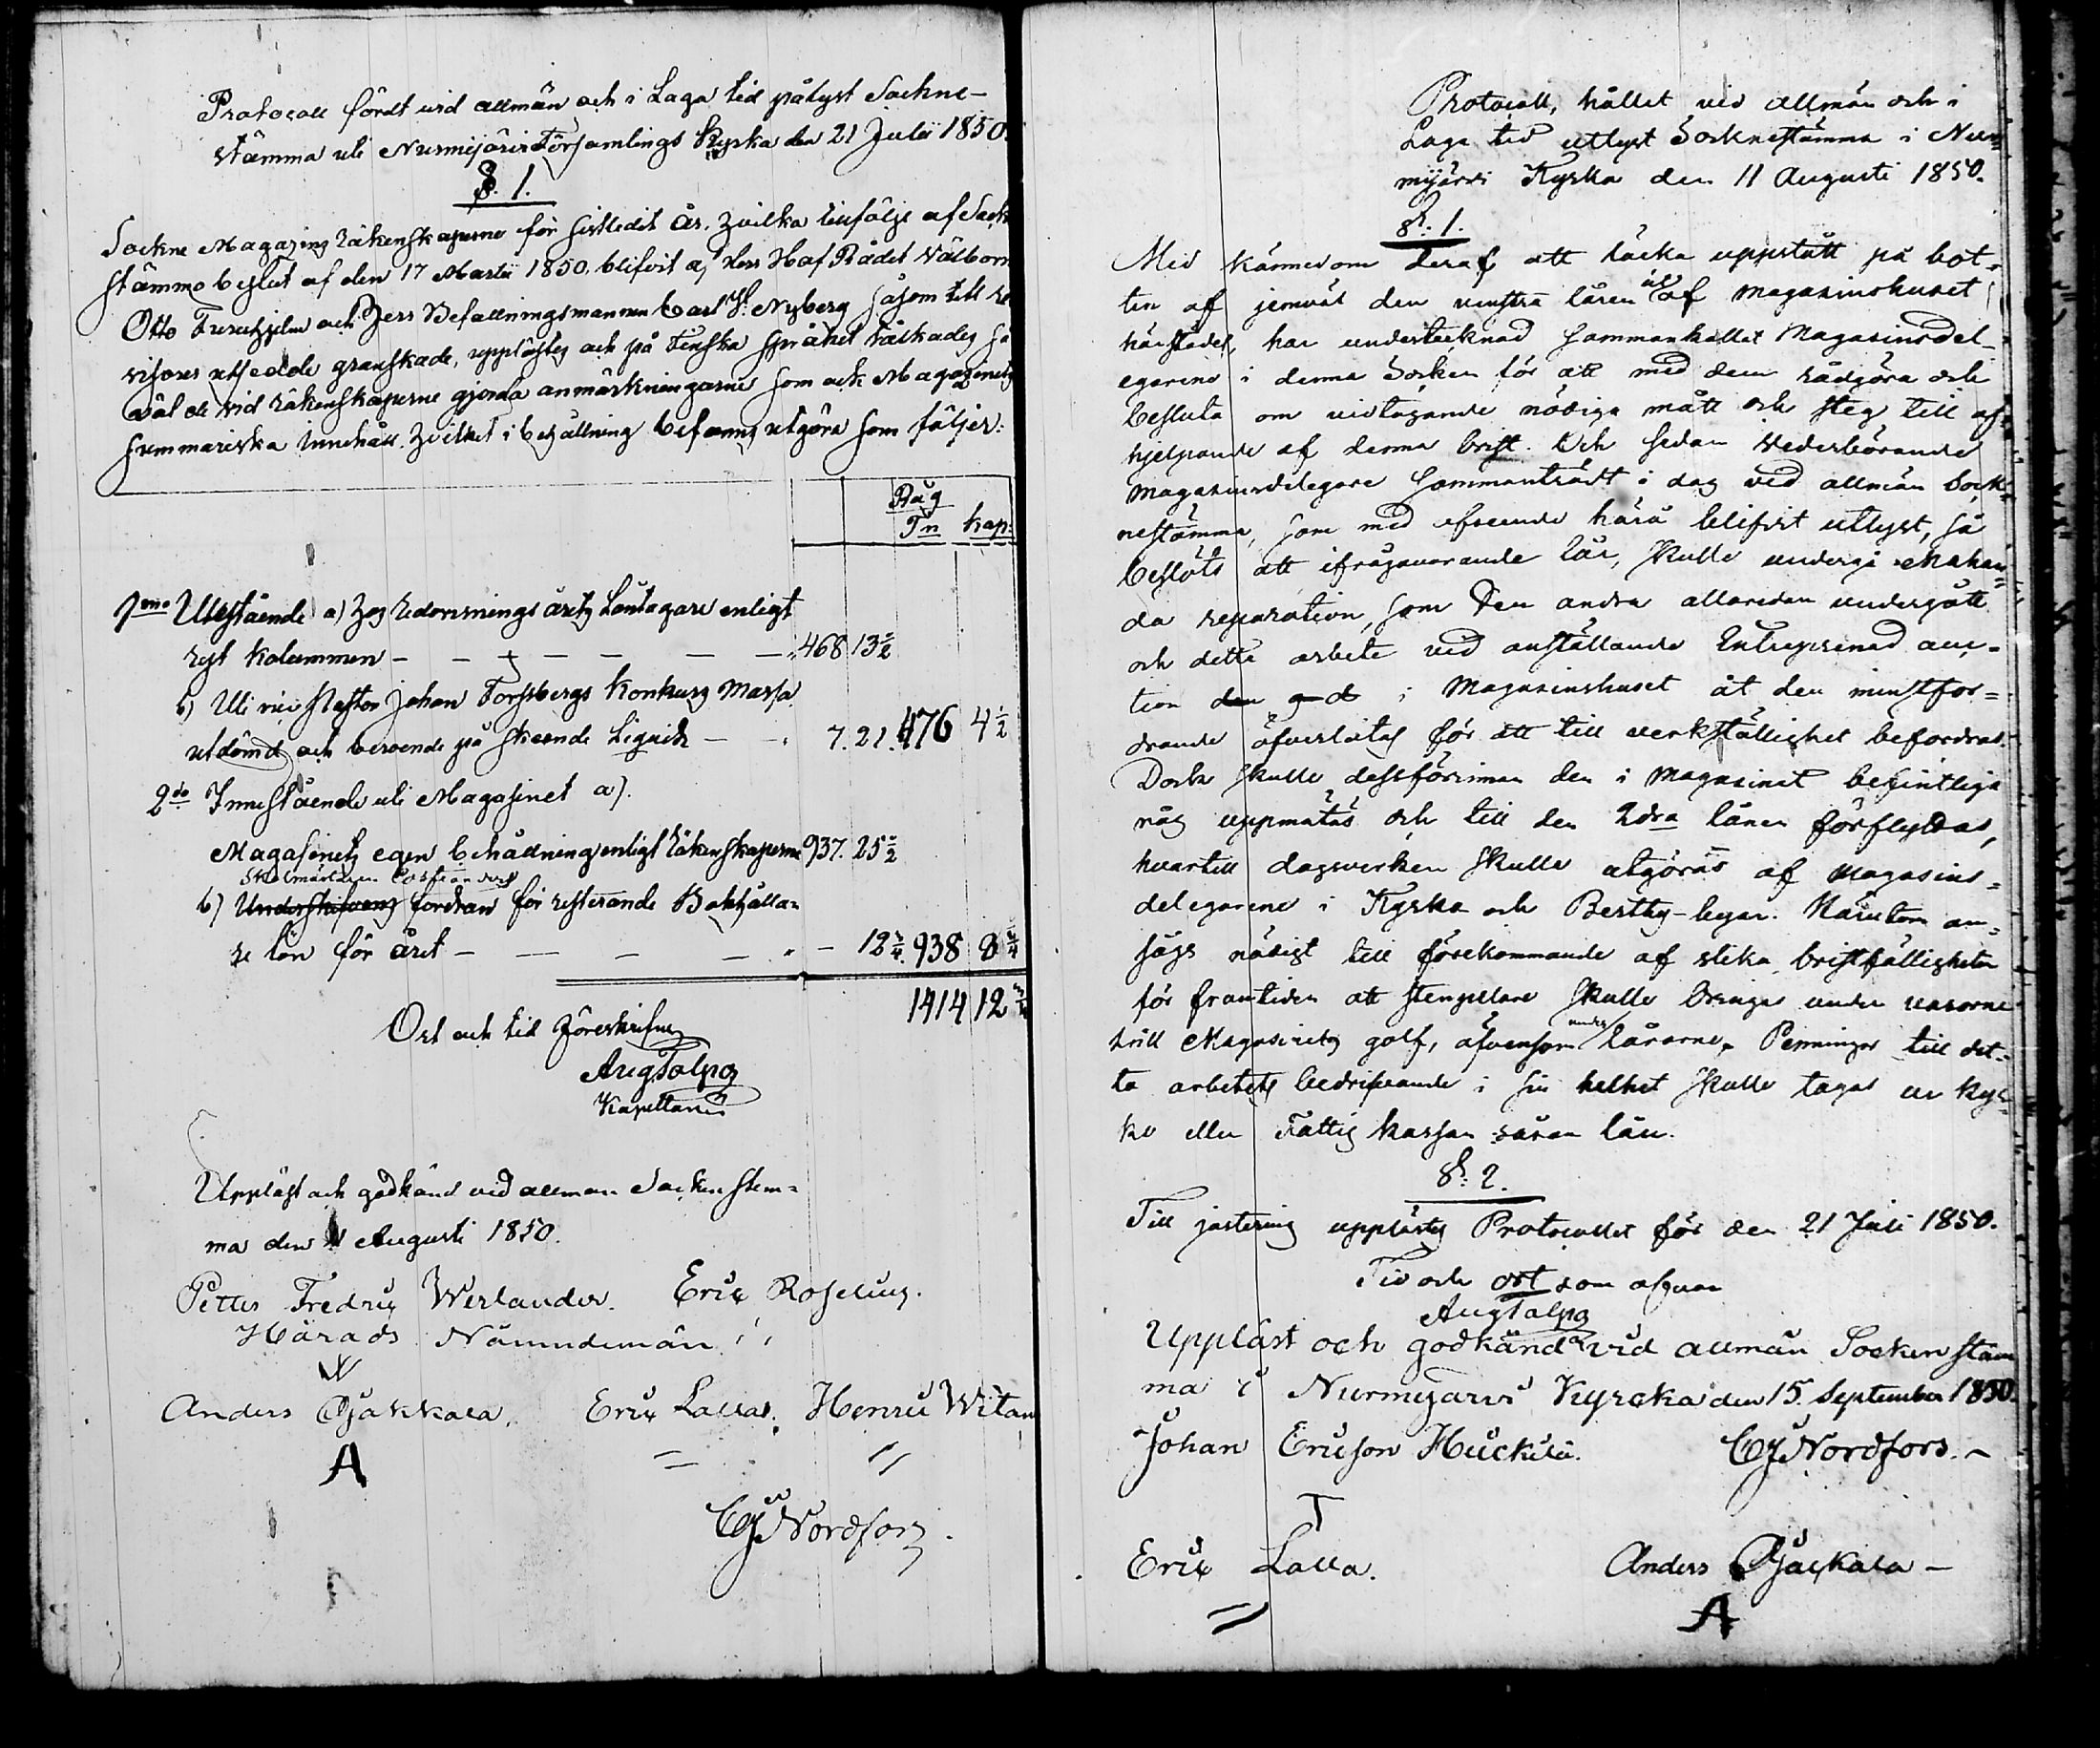 Protocoll fördt vid allmän och i Laga tid pålyst Sockne-
stämma uti Nurmijärvi Församlings Kyrka den 21 Julii 1850.
§. 1.
Sockne Magazins Räkenskaperne för sistledit år, hvilka tillfölje af Sock
stämmo beslut af den 17 Martii 1850, blifvit af Herr Hof Rådet Välborn
Otto Furuhjelm och Herr Befallningsmannen Carl H. Nyberg såsom till re
visorer utsedde granskade, upplästes och på Finska språket tolkades så
väl de vid räkenskaperne gjorda anmärkningarne som ock Magazinets
summariska innehåll, hvilket i behållning befanns utgöra som följer:
Råg
Tn kap:
1mo Utestående a) hos redovisnings årets Låntagare enligt
rest kolummen — — — — — — 468 13½
b) Uti Johan Forssbergs Konkurs Massa
utdömd och beroende på skeende Liquid — — 7. 21. 476 4½
2do Innestående uti Magasinet a).
Magasinets egen behållning enligt räkenskaperne 937. 25½
b) Underskifvens fordran för resterande Bokhålla-
re lön för året — — — — — 12¾. 938 8¼
1414 12¾
Ort och tid föreskrifne
Aug Talpo
Kapellan
Uppläst och godkänd vid allmän Sockenstem-
ma den 11 Augusti 1850.
Petter Fredric Werlander. Eric Roselius.
Härads Nämndemän
Anders Ojakkala. Eric Lallas. Henric Witan
A = //
CJ Nordfors.
Protocoll, hållet vid allmän och i
Laga tid utlyst Socknestämma i Nur=
mijärvi Kyrka den 11 Augusti 1850.
§: 1.
Med kännedom deraf att läcka uppstått på bot-
ten af jemväl den venstra låren af Magasinshuset
härstädes, har undertecknad sammankallat Magasinsdel-
egarene i denna Socken för att med dem rådgöra och
besluta om vidtagande nödiga mått och steg till af-
hjelpande af denna brist. Och sedan Vederbörande
Magasinsdelegare sammanträdt i dag vid allmän Sock-
nestämma, som med afseende härå blifvit utlyst, så
beslöts att ifrågavarande lår, skulle undergå enahan-
da reparation, som den andra allaredan undergått
och detta arbete vid anställande Entreprenad auc-
tion i Magasinshuset åt den minstfor=
drande öfverlåtas för att till verkställighet befordras.
Dock skulle dessförinnan den i Magasinet befintliga
råg uppmätas och till den 2dra låren förflyttas,
hvartill dagsverken skulle utgöras af Magasins=
delegarene i Kyrko och Perttu-byar. Härutom an=
sågs nödigt till förekommande af slika bristfälligheter
för framtiden att stenpelare skulle bringas under vasorne
till Magasinets golf, äfvensom under lårarne. Penningar till det-
ta arbetets bedrifvande i sin helhet skulle tagas ur kyr-
ko eller Fattig kassan såsom lån.
§: 2.
Till justering upplästes Protocollet för den 21 Juli 1850.
Tid och ort som ofvan
Aug Talpo
Uppläst och godkänd vid allmän Sockenstäm
ma i Nurmijärvi Kyrcka den 15. September 1850.
Johan Ericson Huckila. CJ Nordfors.
T
Eric Lalla. Anders Ojackala —
= A